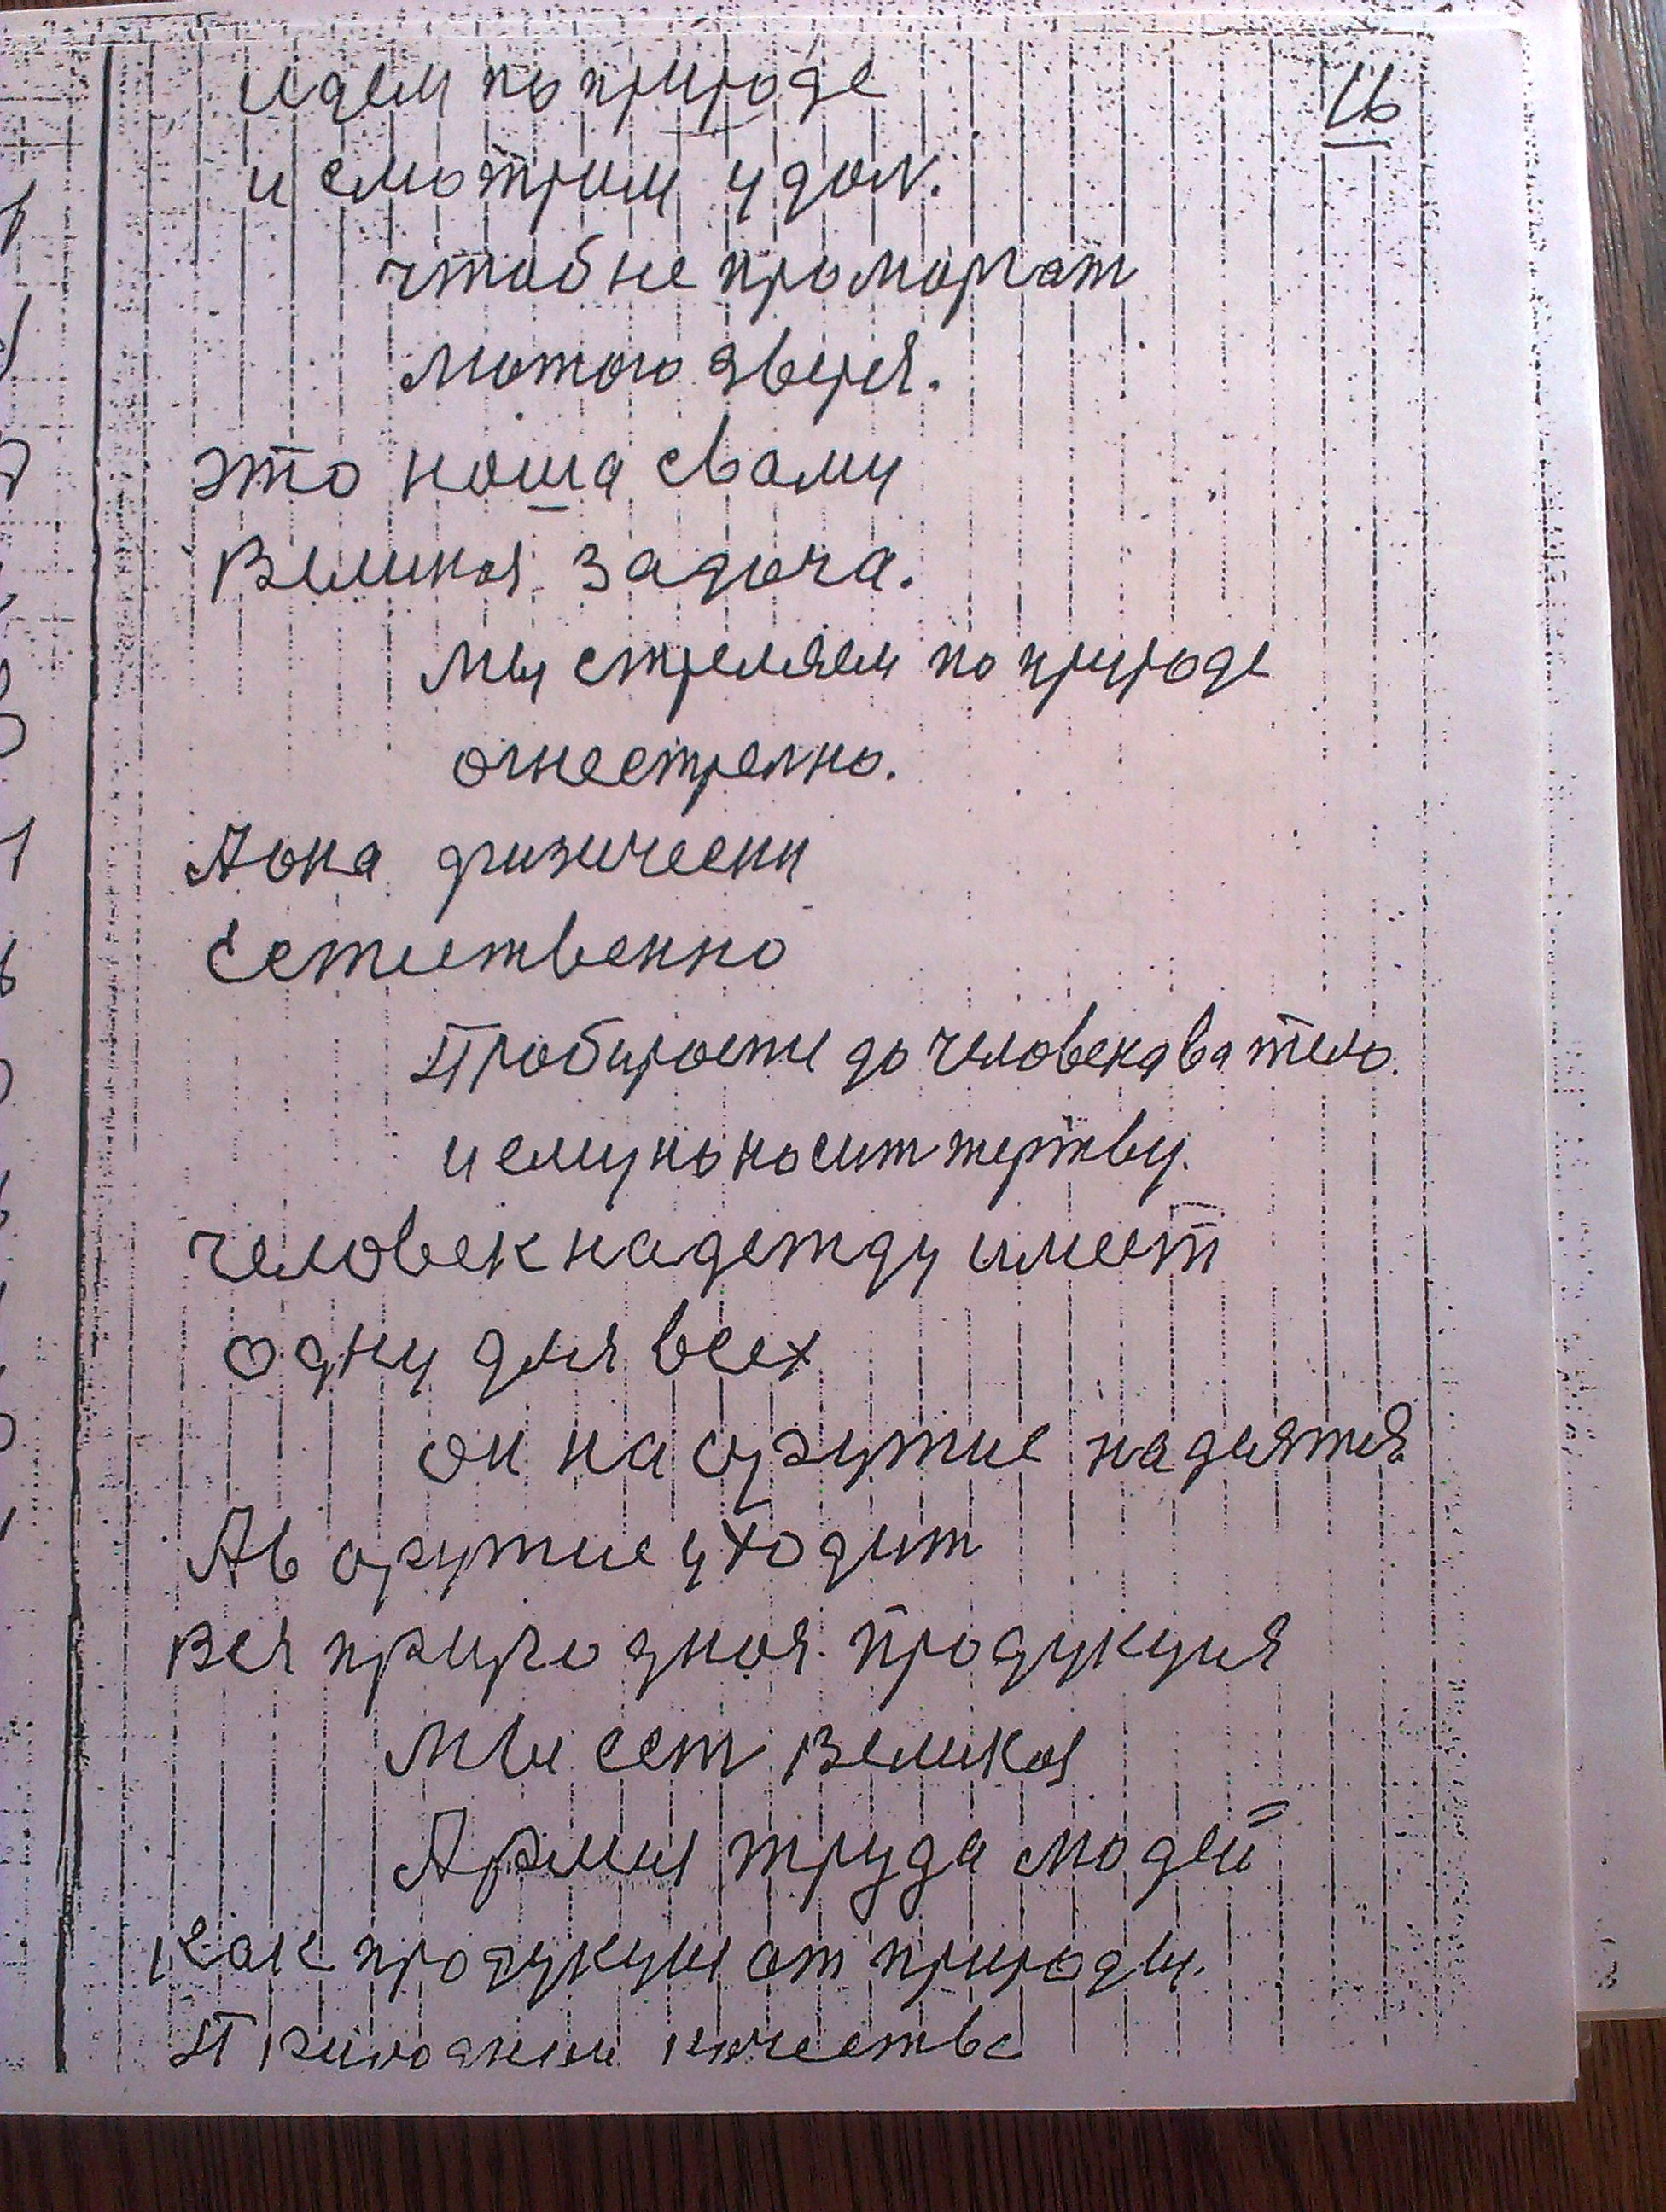 идем по природе
16
и смотрим удол.
чтоб не проморгат
лютого зверя.
это наша свами
Великоя задача.
мы стреляем по природе
огнестрелно.
Аона физически
Естиственно
Пробироти до человека ва тело.
и ему наносит жертву.
человек надежду имеет
одну для всех
он на оружие надеятся
Ав оружие уходит
вся природноя продукция
мы ест великоя
Армия труда людей
как продукция от природы.
Природним качества